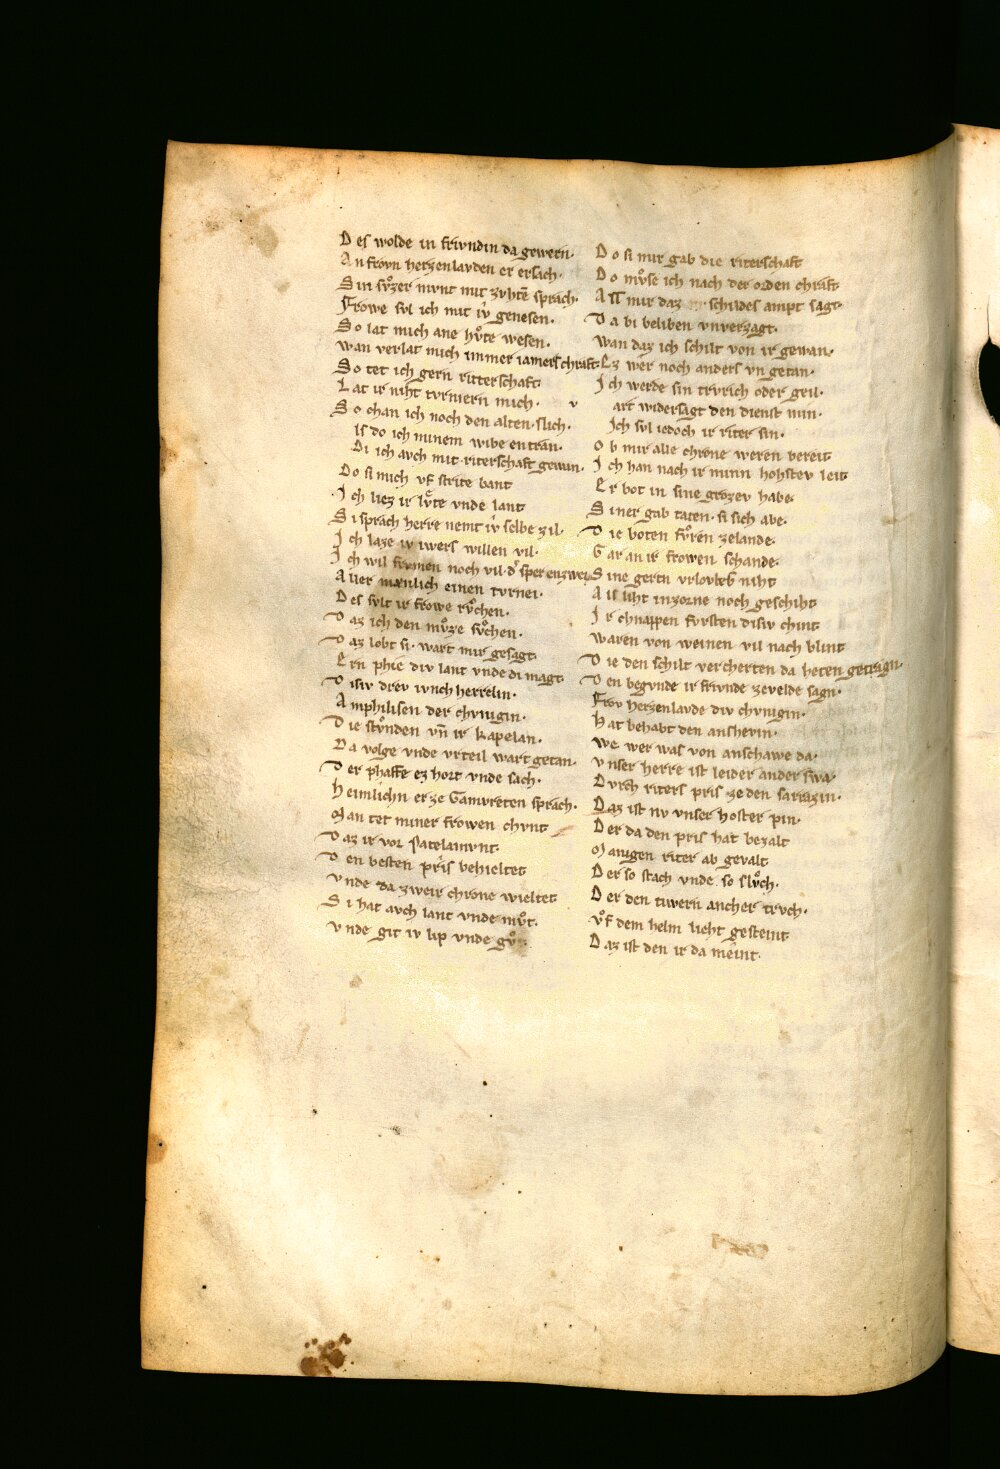 Des wolde in frivndin da gewern.
An frovn herzenlavden er ersach.
Sin sůzer mvnt mit zvhtē sprach.
Frowe svl ich mit iv genesen.
So lat mich ane hůte wesen.
Wan verlat mich immer iamers chraft
So tet ich gern ritterschaft
Lat ir niht tvrniern mich.
So chan ich noch den alten slich.
ls do ich minem wibe entran.
Di ich avch mit riterschaft gewan.
Do si mich vf strite bant
Ich liez ir lvte vnde lant
Si sprach herre nemt iv selbe zil.
Ich laze iv iwers willen vil.
Ich wil frvmen noch vil d' sper enzwei
Aller mænlich einen tvrnei.
Des svlt ir frowe růchen.
Daz ich den můze sůchen.
Daz lobt si. wart mir gesagt
Ern phie div lant vnde di magt
Disiv drev ivnchherrelin.
Amphilisen der chvnigin.
Die stůnden vn̄ ir kapelan.
Da volge vnde vrteil wart getan.
Der phaffe ez hort vnde sach.
Heimlichn er ze Gamvreten sprach.
Man tet miner frowen chvnt
Daz ir vor patelamvnt.
Den besten pris behieltet
Vnde da zweir chrone wieltet
Si hat avch lant vnde můt.
Vnde git iv lip vnde
Do si mir gab die riterschaft
Do můse ich nach der orden chraft
Als mir daz schildes ampt sagt
Da bi beliben vnverzagt.
Wan daz ich schilt von ir gewan.
Ez wer noch anders vngetan.
Ich werde sin trvrich oder geil.
v art widersagt den dienst min.
Ich svl iedoch ir riter sin.
Ob mir alle chrone weren bereit
Ich han nach ir minn hohstev leit
Er bot in sine grozev habe
Siner gab taten si sich abe.
Die boten fůren zelande.
Gar an ir frowen schande.
Sine gertn vrlovbes niht
Als liht inzorne noch geschiht
Ir chnappen fvrsten disiv chint
Waren von weinen vil nach blint
Die den schilt vercherten da heten getragn.
Den begvnde ir frivnde zevelde sagn.
Frov herzenlavde div chvnigin.
Hat behabt den anshevin.
We wer was von anschawe da.
Vnser herre ist leider ander swa.
Dvrch riters pris ze den sarrazin.
Daz ist nv vnser hoster pin.
Der da den pris hat bezalt
Manigen riter ab gevalt
Der so stach vnde so slůch.
Der den tiwern ancher trvch.
Vf dem helm lieht gesteint
Daz ist den ir da meint.